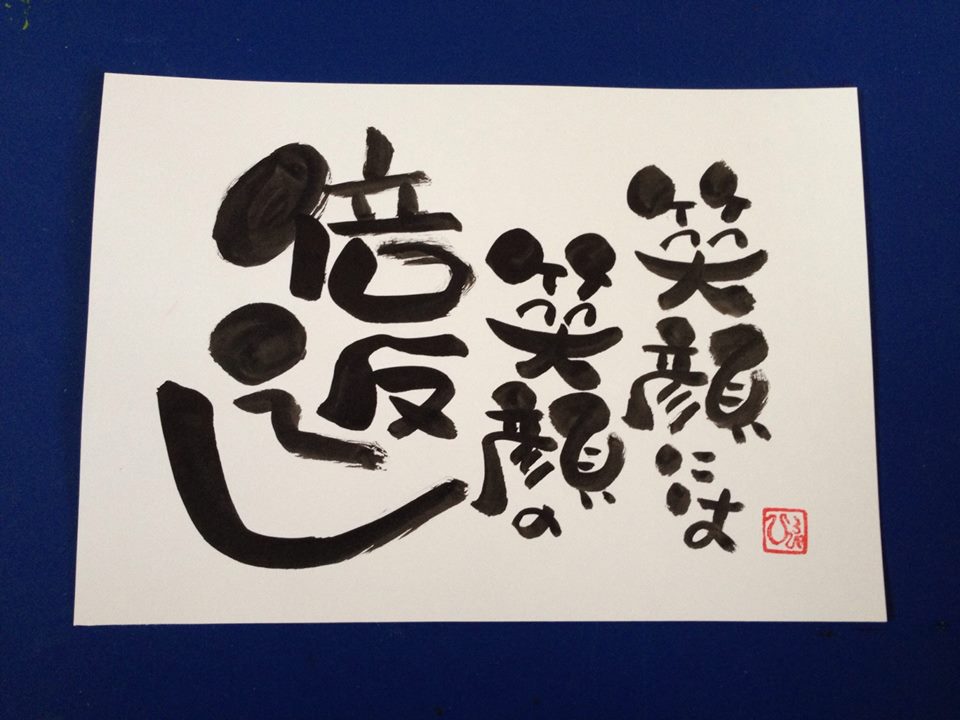 笑顔には
笑顔の
倍返し